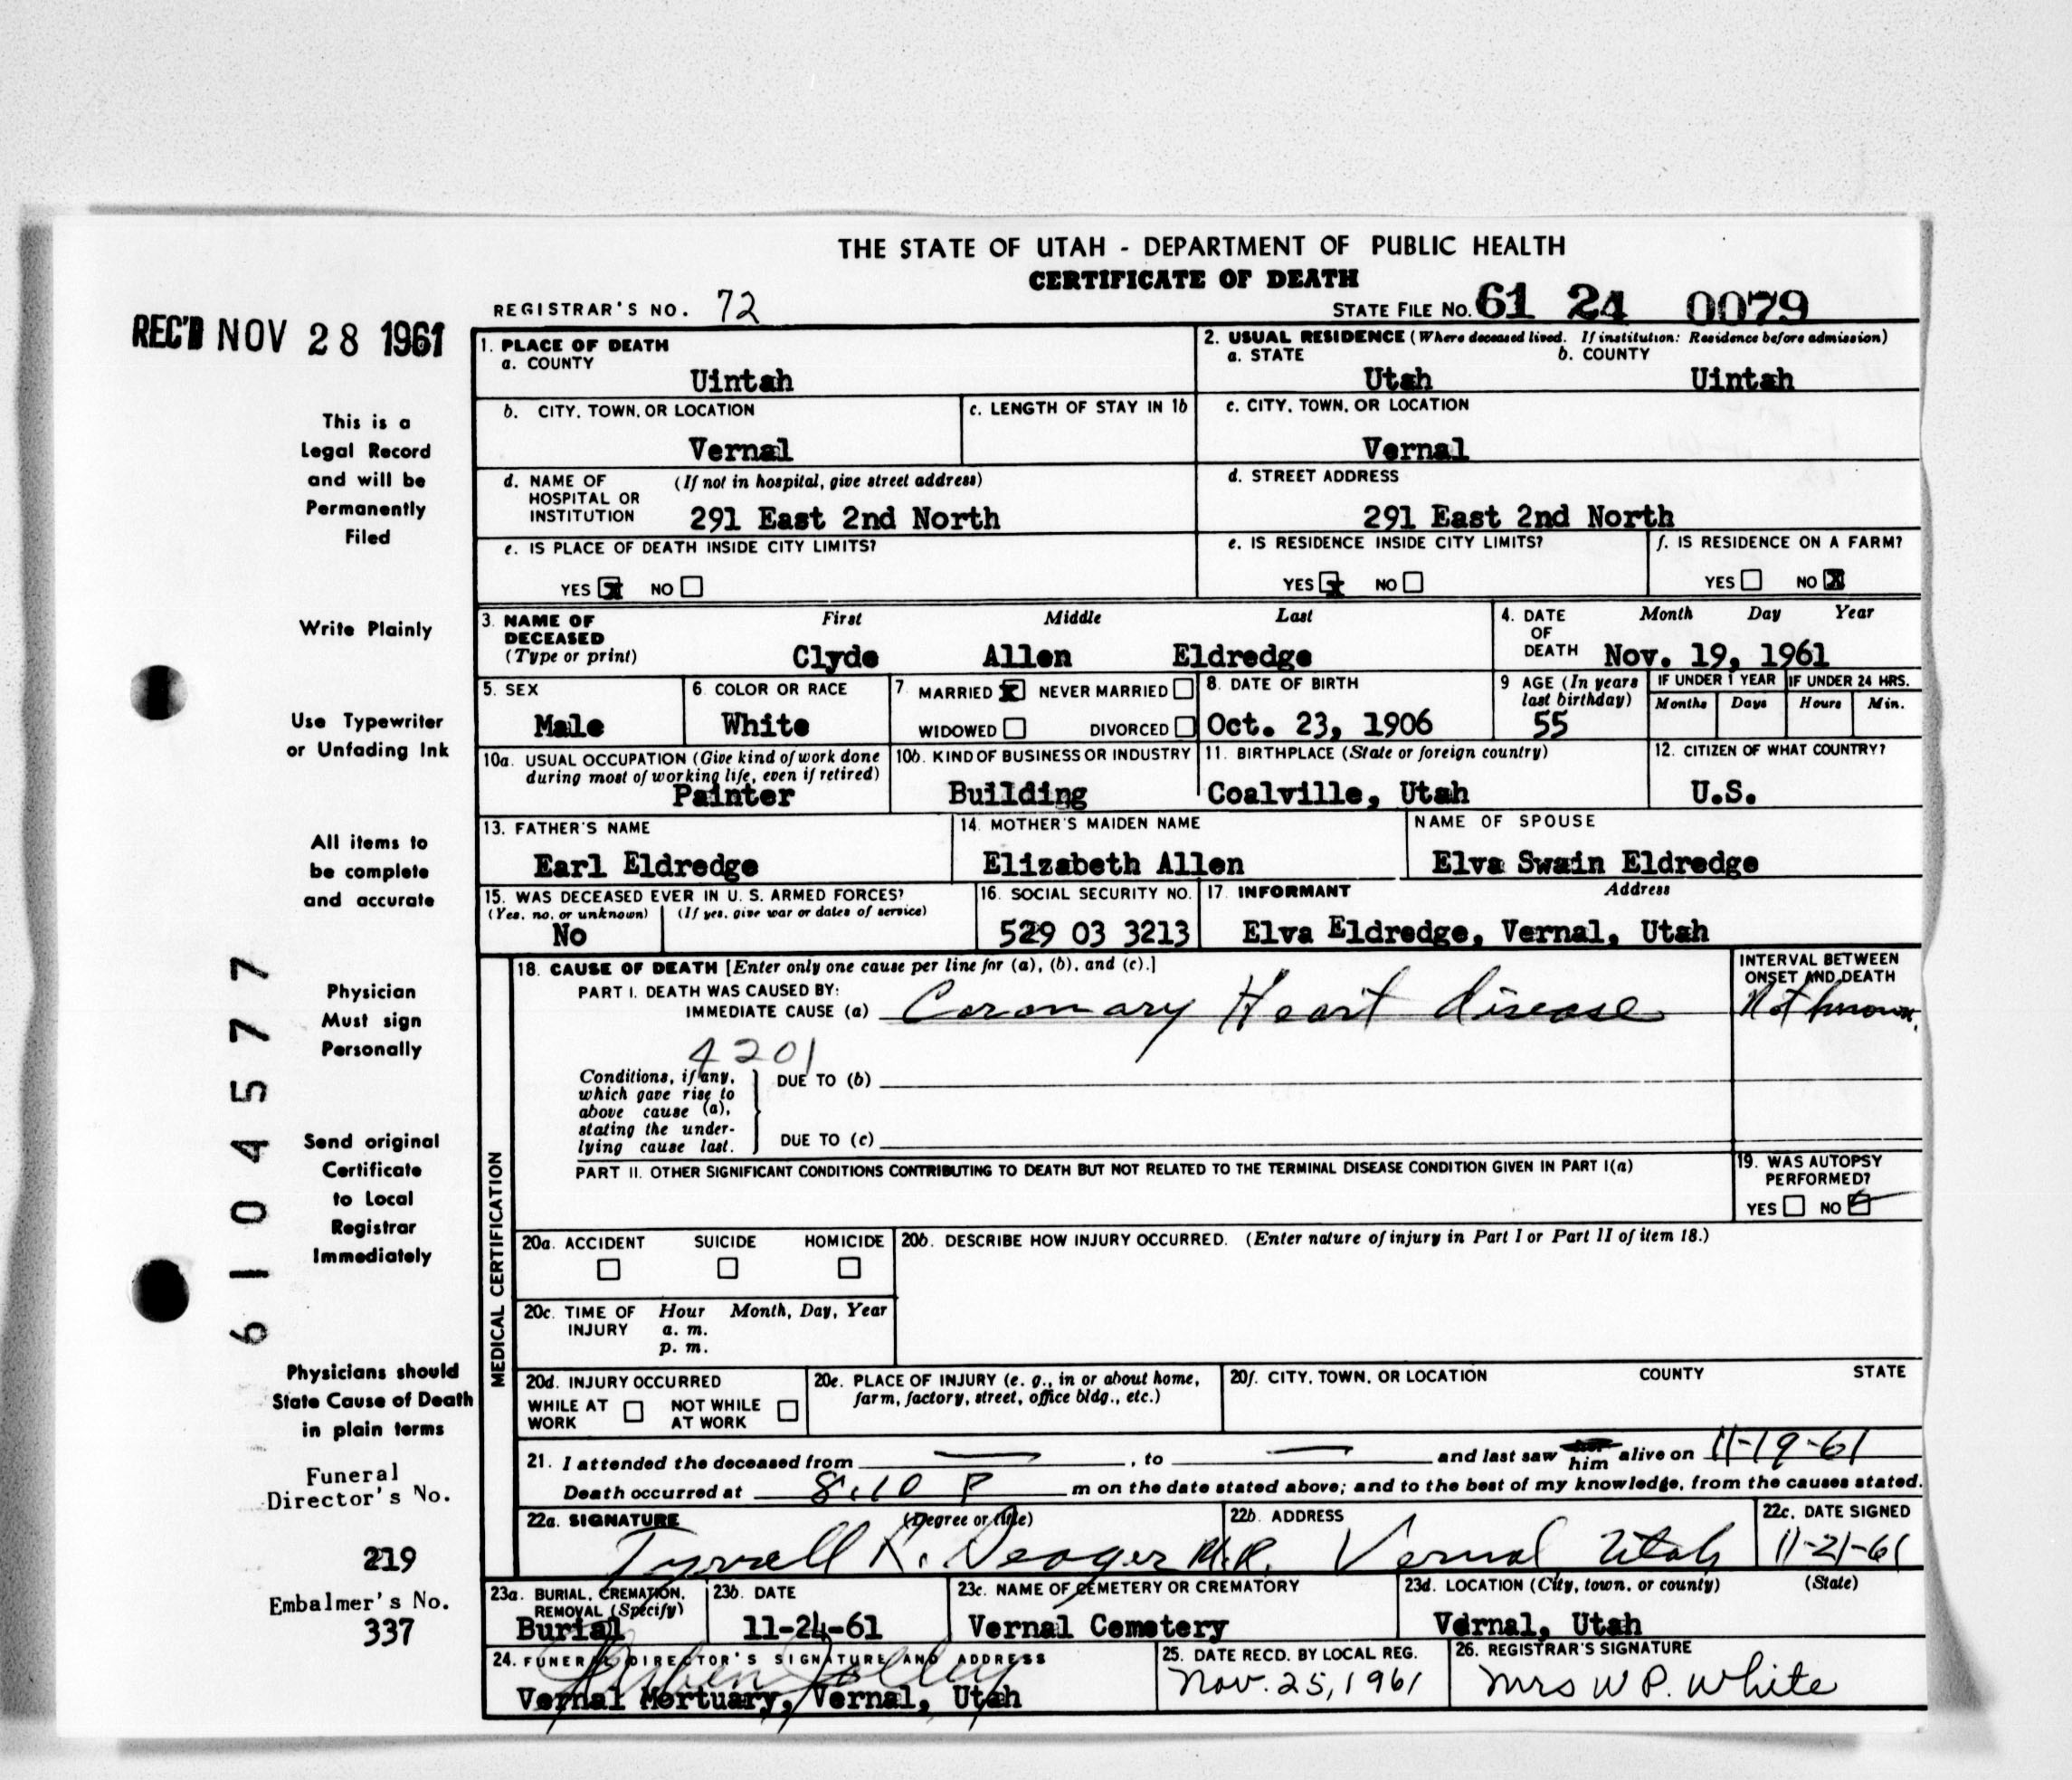 THE STATE OF UTAH - DEPARTMENT OF PUBLIC HEALTH
CERTIFICATE OF DEATH
REGISTRAR'S NO. 72
STATE FILE NO. 61 24 0079
REC'D NOV 28 1961
This is a
Legal Record
and will be
Permanently
Filed
Write Plainly
Use Typewriter
or Unfading Ink
All items to
be complete
and accurate
Physician
Must sign
Personally
Send original
Certificate
to Local
Registrar
Immediately
Physicians should
State Cause of Death
in plain terms
Funeral
Director's No.
219
Embalmer's No.
337
6104577
1. PLACE OF DEATH
a. COUNTY
Uintah
2. USUAL RESIDENCE (Where deceased lived. If institution: Residence before admission)
a. STATE b. COUNTY
Utah Uintah
b. CITY, TOWN, OR LOCATION
Vernal
c. LENGTH OF STAY IN 1b
c. CITY, TOWN, OR LOCATION
Vernal
d. NAME OF (If not in hospital, give street address)
HOSPITAL OR
INSTITUTION 291 East 2nd North
d. STREET ADDRESS
291 East 2nd North
e. IS PLACE OF DEATH INSIDE CITY LIMITS?
YES X NO
e. IS RESIDENCE INSIDE CITY LIMITS?
YES X NO
f. IS RESIDENCE ON A FARM?
YES NO X
3. NAME OF First Middle Last
DECEASED
(Type or print) Clyde Allen Eldredge
4. DATE Month Day Year
OF
DEATH Nov. 19, 1961
5. SEX
Male
6. COLOR OR RACE
White
7. MARRIED X NEVER MARRIED
WIDOWED DIVORCED
8. DATE OF BIRTH
Oct. 23, 1906
9 AGE (In years
last birthday)
55
IF UNDER 1 YEAR IF UNDER 24 HRS.
Months Days Hours Min.
10a. USUAL OCCUPATION (Give kind of work done
during most of working life, even if retired)
Painter
10b. KIND OF BUSINESS OR INDUSTRY
Building
11. BIRTHPLACE (State or foreign country)
Coalville, Utah
12. CITIZEN OF WHAT COUNTRY?
U.S.
13. FATHER'S NAME
Earl Eldredge
14. MOTHER'S MAIDEN NAME
Elizabeth Allen
NAME OF SPOUSE
Elva Swain Eldredge
15. WAS DECEASED EVER IN U. S. ARMED FORCES?
(Yes, no, or unknown) (If yes, give war or dates of service)
No
16. SOCIAL SECURITY NO.
529 03 3213
17. INFORMANT Address
Elva Eldredge, Vernal, Utah
MEDICAL CERTIFICATION
18. CAUSE OF DEATH [Enter only one cause per line for (a), (b), and (c).]
PART I. DEATH WAS CAUSED BY:
IMMEDIATE CAUSE (a) Coronary Heart disease
INTERVAL BETWEEN
ONSET AND DEATH
Not known
4201
Conditions, if any,
which gave rise to
above cause (a),
stating the under-
lying cause last.
DUE TO (b)
DUE TO (c)
PART II. OTHER SIGNIFICANT CONDITIONS CONTRIBUTING TO DEATH BUT NOT RELATED TO THE TERMINAL DISEASE CONDITION GIVEN IN PART I(a)
19. WAS AUTOPSY
PERFORMED?
YES NO
20a. ACCIDENT SUICIDE HOMICIDE
20b. DESCRIBE HOW INJURY OCCURRED. (Enter nature of injury in Part I or Part II of item 18.)
20c. TIME OF Hour Month, Day, Year
INJURY a. m.
p. m.
20d. INJURY OCCURRED
WHILE AT NOT WHILE
WORK AT WORK
20e. PLACE OF INJURY (e. g., in or about home,
farm, factory, street, office bldg., etc.)
20f. CITY, TOWN, OR LOCATION COUNTY STATE
21. I attended the deceased from , to and last saw her him alive on 11-19-61
Death occurred at 8:10 P m on the date stated above; and to the best of my knowledge, from the causes stated.
22a. SIGNATURE (Degree or title)
Tyrrell K. Seager M.D.
22b. ADDRESS
Vernal Utah
22c. DATE SIGNED
11-21-61
23a. BURIAL, CREMATION,
REMOVAL (Specify)
Burial
23b. DATE
11-24-61
23c. NAME OF CEMETERY OR CREMATORY
Vernal Cemetery
23d. LOCATION (City, town, or county) (State)
Vernal, Utah
24. FUNERAL DIRECTOR'S SIGNATURE AND ADDRESS
Vernal Mortuary, Vernal, Utah
25. DATE RECD. BY LOCAL REG.
Nov. 25, 1961
26. REGISTRAR'S SIGNATURE
Mrs W P. White